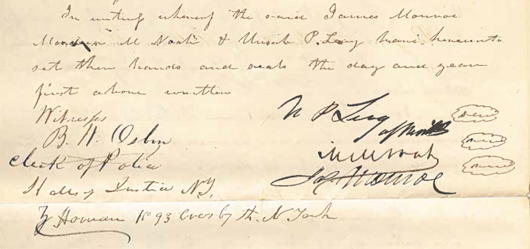 In witness whereof the said James Monroe
M Noah & Uriah P. Levy have hereunto
set their hands and seals the day and year
first above written
Witnesses
U P Levy
B W Osborn
M M Noah
Clerk of Police
Jas Monroe
Halls of Justice N.Y.
No 93 St. N York